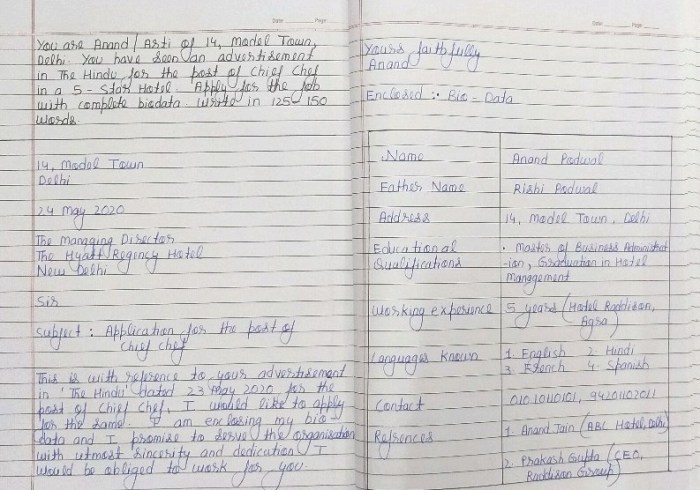 Date Page
You are Anand/Arti of 14, Model Town,
Delhi. You have seen an advertisement
in The Hindu for the post of Chief Chef
in a 5-Star Hotel. Apply for the job
with complete biodata. Write in 125-150
words.
14, Model Town
Delhi
24 May 2020
The Managing Director
The Hyatt Regency Hotel
New Delhi
Sir
Subject : Application for the post of
Chief Chef
This is with reference to your advertisement
in 'The Hindu' dated 23 May 2020 for the
post of Chief Chef, I would like to apply
for the same. I am enclosing my bio-
data and I promise to serve the organisation
with utmost sincerity and dedication. I
would be obliged to work for you.
Date Page
Yours faithfully
Anand
Enclosed :- Bio-Data
Name Anand Padwal
Father Name Rishi Padwal
Address 14, Model Town, Delhi
Educational • Master of Business Administrat
Qualifications -ion, Graduation in Hotel
Management
Working experience 5 years (Hotel Raddison,
Agra)
Languages known 1. English 2. Hindi
3. French 4. Spanish
Contact 010 1010101, 9420110201
Refrences 1. Anand Jain (ABC Hotel, Delhi)
2. Prakash Gupta (CEO,
Raddison Group)